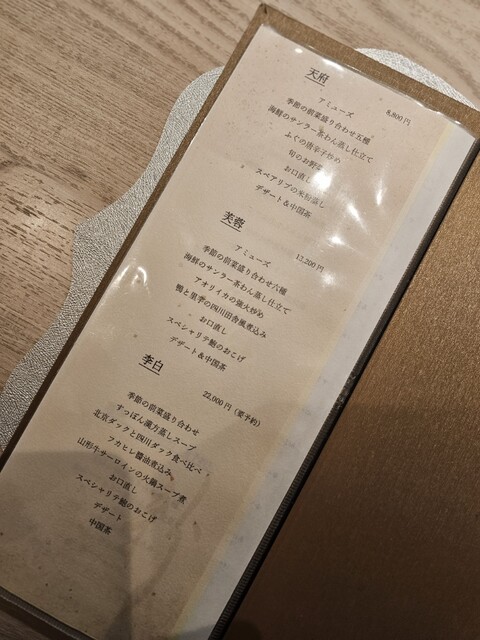 天府
8,800円
アミューズ
季節の前菜盛り合わせ五種
海鮮のサンラー茶わん蒸し仕立て
ふぐの唐辛子炒め
旬のお野菜
お口直し
スペアリブの米粉蒸し
デザート＆中国茶
芙蓉
13,200円
アミューズ
季節の前菜盛り合わせ六種
海鮮のサンラー茶わん蒸し仕立て
アオリイカの強火炒め
鴨と里芋の四川田舎風煮込み
お口直し
スペシャリテ鮑のおこげ
デザート＆中国茶
李白
22,000円（要予約）
季節の前菜盛り合わせ
すっぽん漢方蒸しスープ
北京ダックと四川ダック食べ比べ
フカヒレ醤油煮込み
山形牛サーロインの火鍋スープ煮
お口直し
スペシャリテ鮑のおこげ
デザート
中国茶